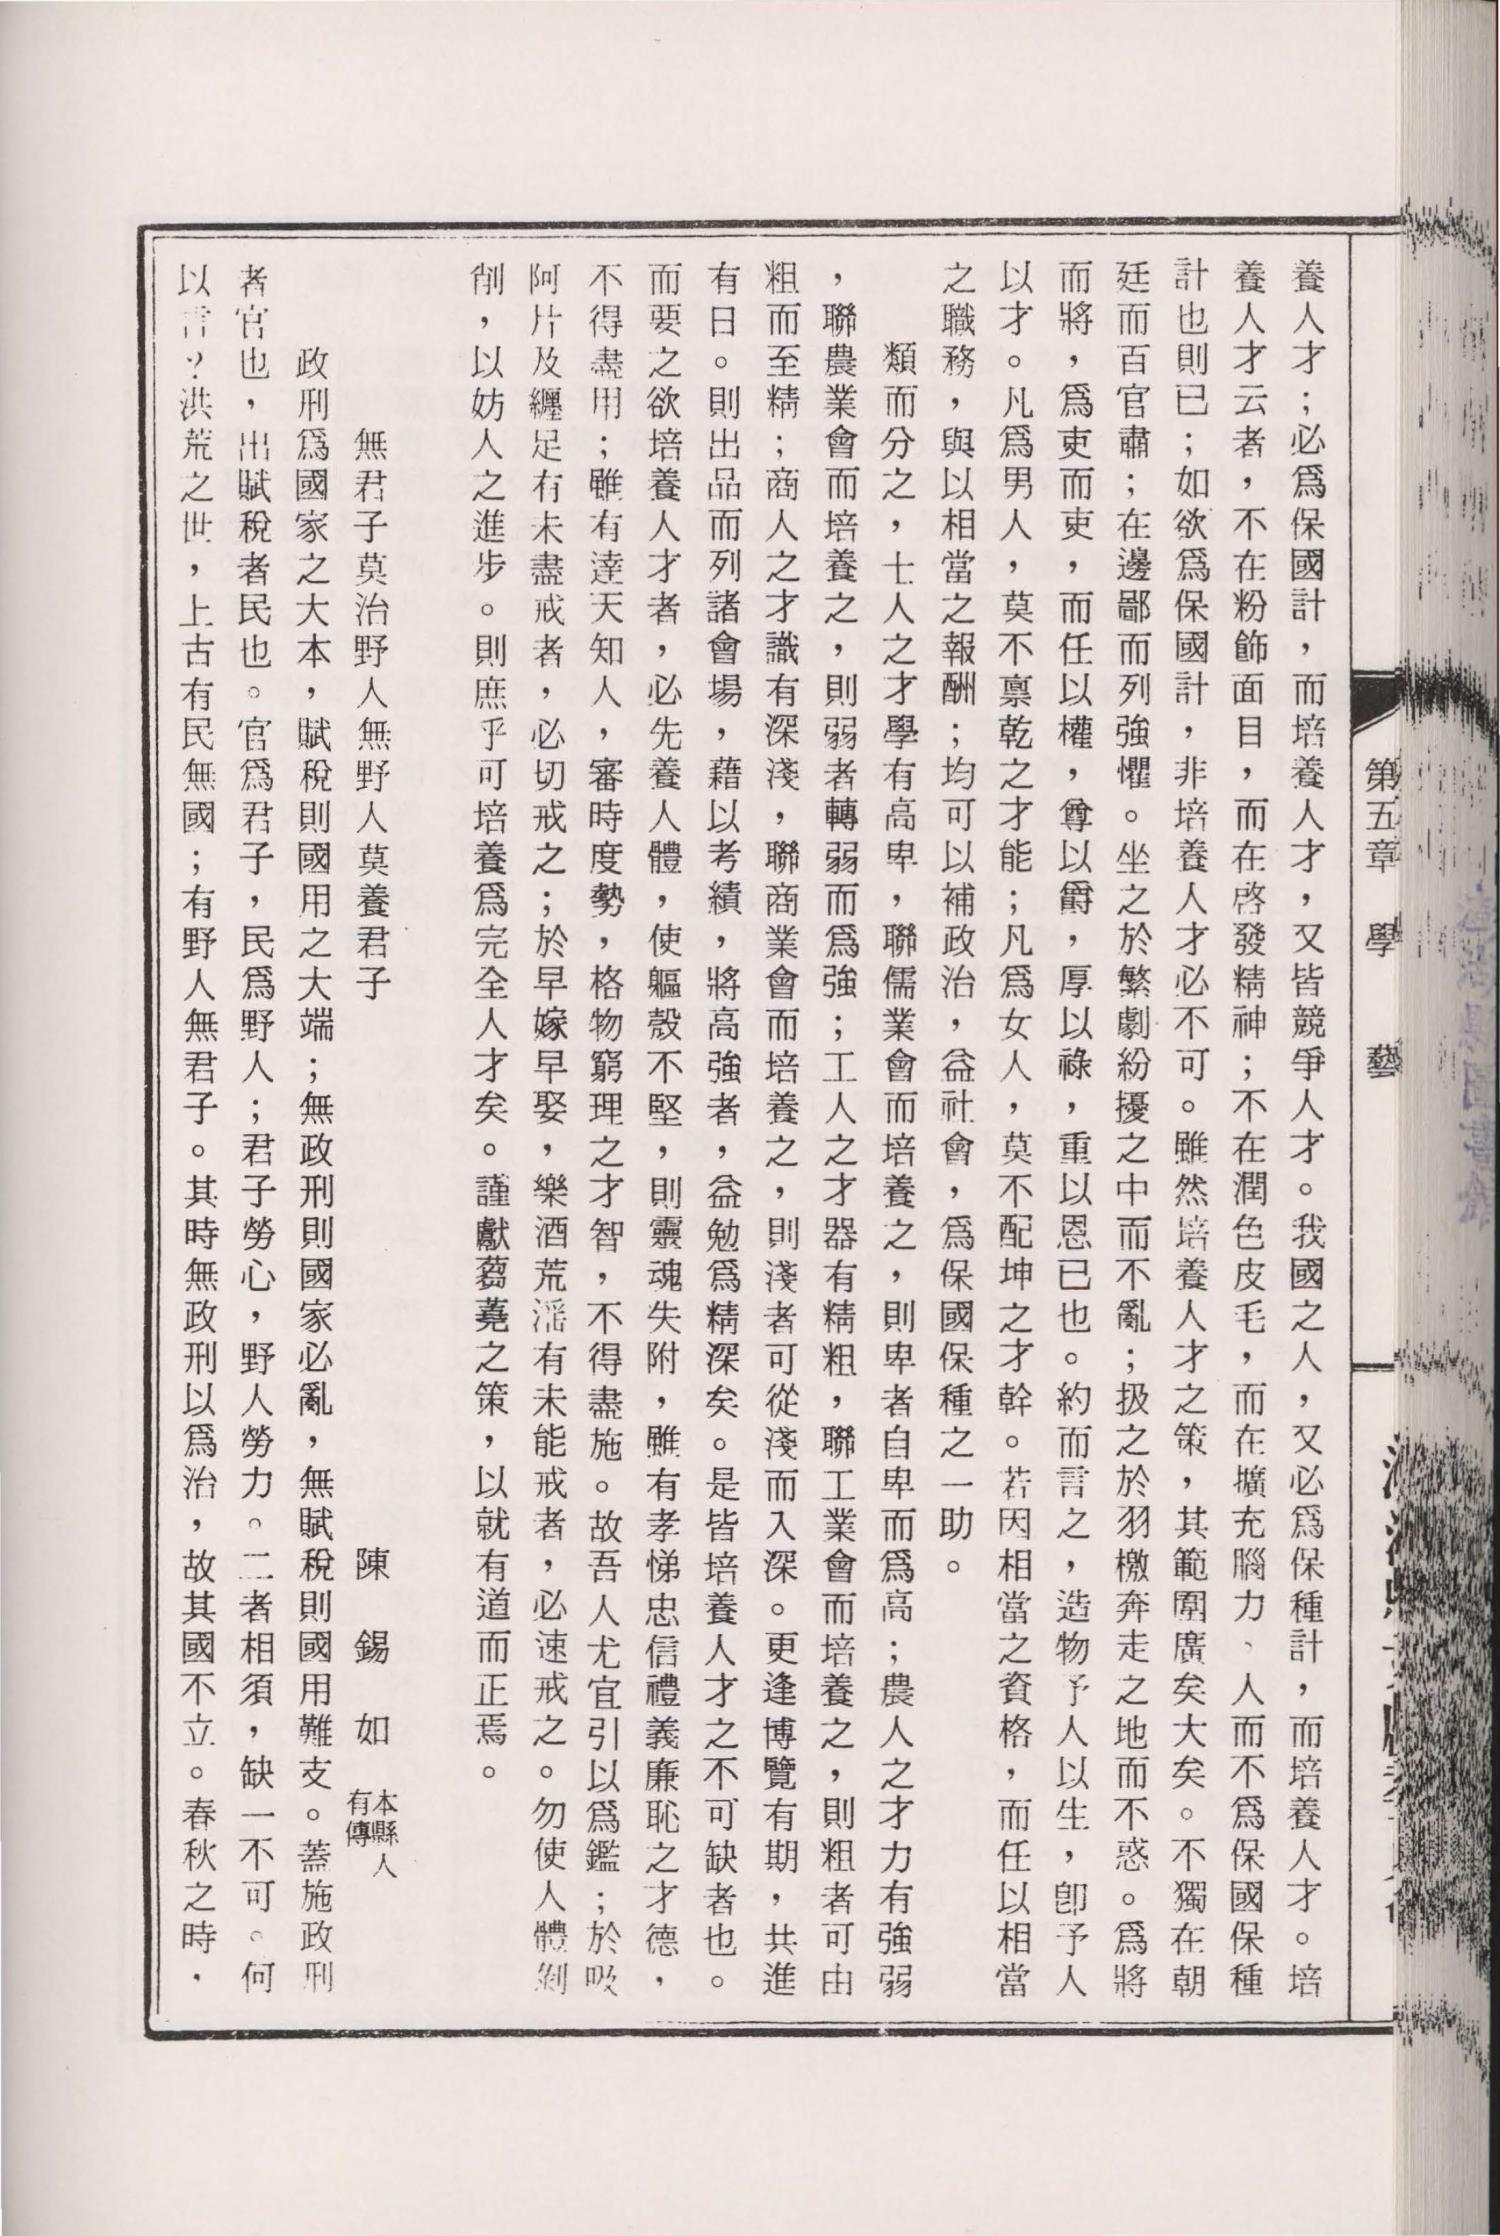 第五章　學　藝
養人才；必爲保國計，而培養人才，又皆競爭人才。我國之人，又必爲保種計，而培養人才。培
養人才云者，不在粉飾面目，而在啓發精神；不在潤色皮毛，而在擴充腦力、人而不爲保國保種
計也則已；如欲爲保國計，非培養人才必不可。雖然培養人才之策，其範圍廣矣大矣。不獨在朝
廷而百官肅；在邊鄙而列強懼。坐之於繁劇紛擾之中而不亂；扱之於羽檄奔走之地而不惑。爲將
而將，爲吏而吏，而任以權，尊以爵，厚以祿，重以恩已也。約而言之，造物予人以生，卽予人
以才。凡爲男人，莫不禀乾之才能；凡爲女人，莫不配坤之才幹。若因相當之資格，而任以相當
之職務，與以相當之報酬；均可以補政治，益社會，爲保國保種之一助。
類而分之，士人之才學有高卑，聯儒業會而培養之，則卑者自卑而爲高；農人之才力有強弱
，聯農業會而培養之，則弱者轉弱而爲強；工人之才器有精粗，聯工業會而培養之，則粗者可由
粗而至精；商人之才識有深淺，聯商業會而培養之，則淺者可從淺而入深。更逢博覽有期，共進
有日。則出品而列諸會場，藉以考績，將高強者，益勉爲精深矣。是皆培養人才之不可缺者也。
而要之欲培養人才者，必先養人體，使軀殼不堅，則靈魂失附，雖有孝悌忠信禮義廉恥之才德，
不得盡用；雖有達天知人，審時度勢，格物窮理之才智，不得盡施。故吾人尤宜引以爲鑑；於吸
阿片及纏足有未盡戒者，必切戒之；於早嫁早娶，樂酒荒淫有未能戒者，必速戒之。勿使人體剝
削，以妨人之進步。則庶乎可培養爲完全人才矣。謹獻芻蕘之策，以就有道而正焉。
無君子莫治野人無野人莫養君子　陳　錫　如　本縣人有傳
政刑爲國家之大本，賦稅則國用之大端；無政刑則國家必亂，無賦稅則國用難支。蓋施政刑
者官也，出賦稅者民也。官爲君子，民爲野人；君子勞心，野人勞力。二者相須，缺一不可。何
以言？洪荒之世，上古有民無國；有野人無君子。其時無政刑以爲治，故其國不立。春秋之時，